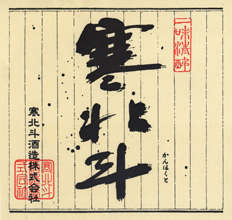 一味清酔
寒北斗
かんほくと
寒北斗酒造株式会社